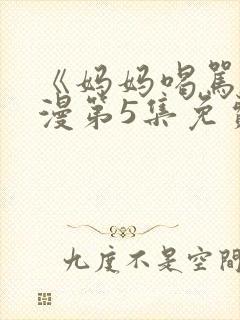 《妈妈喝骂
漫第5集免费
九度不是空间